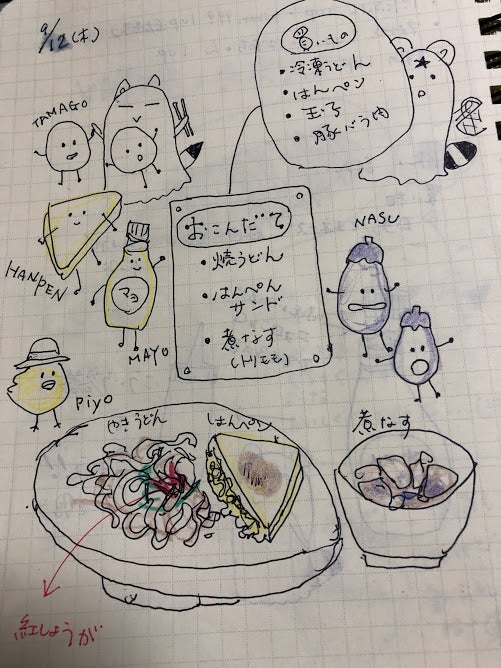 9/12(木)
買いもの
・冷凍うどん
・はんペン
・玉子
・豚バラ肉
TAMAGO
HANPEN
マヨ
MAYO
おこんだて
・焼うどん
・はんぺん
サンド
・煮なす
NASU
Piyo
やきうどん
はんペン
煮なす
紅しょうが